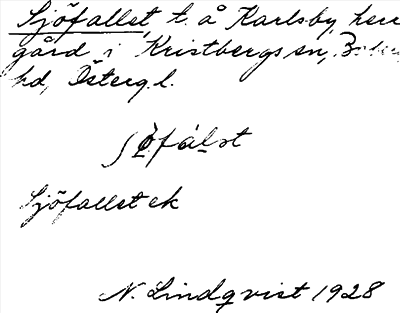 Sjöfallet, t. å Karlsby, herr
gård i Kristbergs sn,
hd, Österg.l.
ʃö̀fálət
Sjöfallet ek
N. Lindqvist 1928